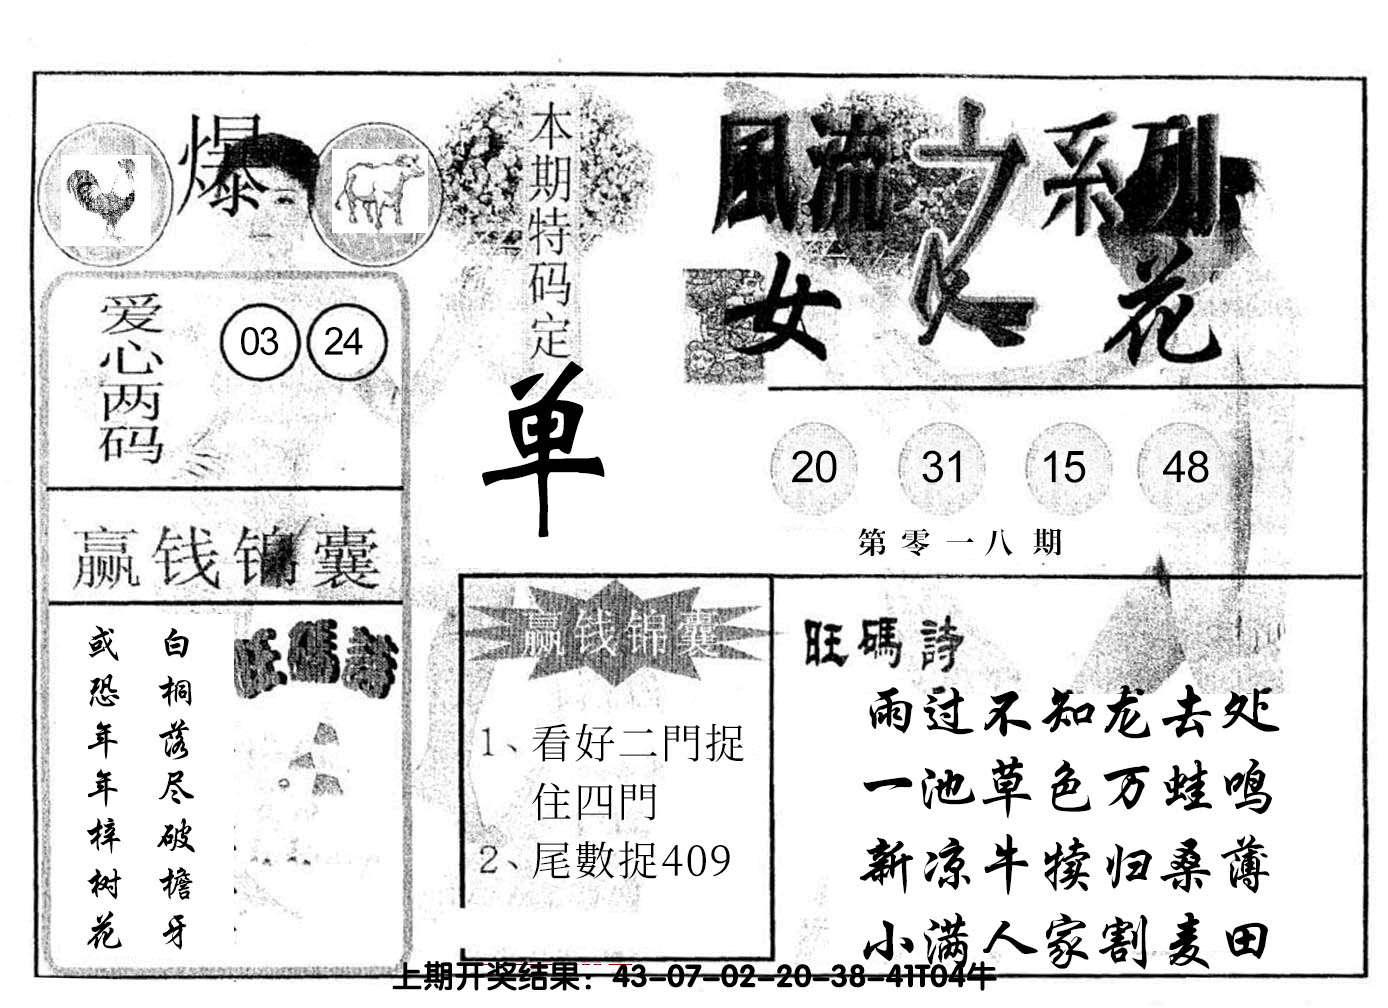 爆
本期特码定
单
風流之系列
女人花
爱心两码
03 24
20 31 15 48
第零一八期
赢钱锦囊
旺碼詩
白桐落尽破檐牙
或恐年年梓树花
赢钱锦囊
1、看好二門捉
住四門
2、尾數捉409
旺碼詩
雨过不知龙去处
一池草色万蛙鸣
新凉牛犊归桑薄
小满人家割麦田
上期开奖结果：43-07-02-20-38-41T04牛